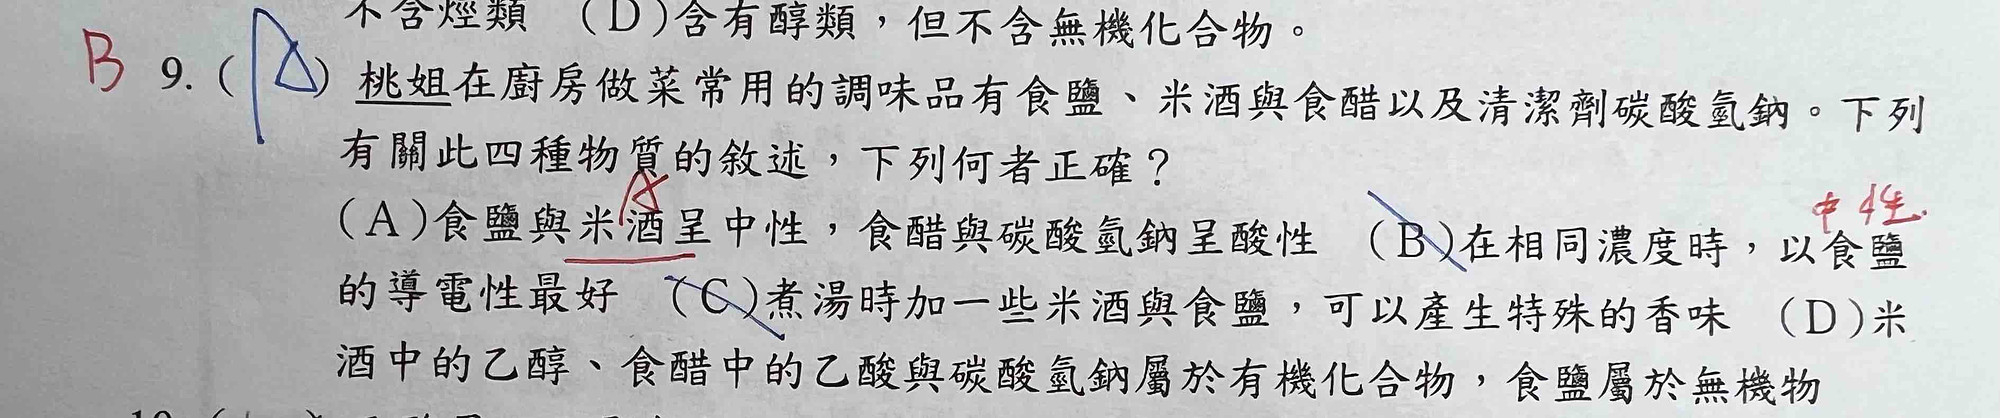 不含烴類 (D)含有醇類，但不含無機化合物。
B 9. ( A ) 桃姐在廚房做菜常用的調味品有食鹽、米酒與食醋以及清潔劑碳酸氫鈉。下列
有關此四種物質的敘述，下列何者正確？
中性.
(A)食鹽與米酒呈中性，食醋與碳酸氫鈉呈酸性 (B)在相同濃度時，以食鹽
的導電性最好 (C)煮湯時加一些米酒與食鹽，可以產生特殊的香味 (D)米
酒中的乙醇、食醋中的乙酸與碳酸氫鈉屬於有機化合物，食鹽屬於無機物